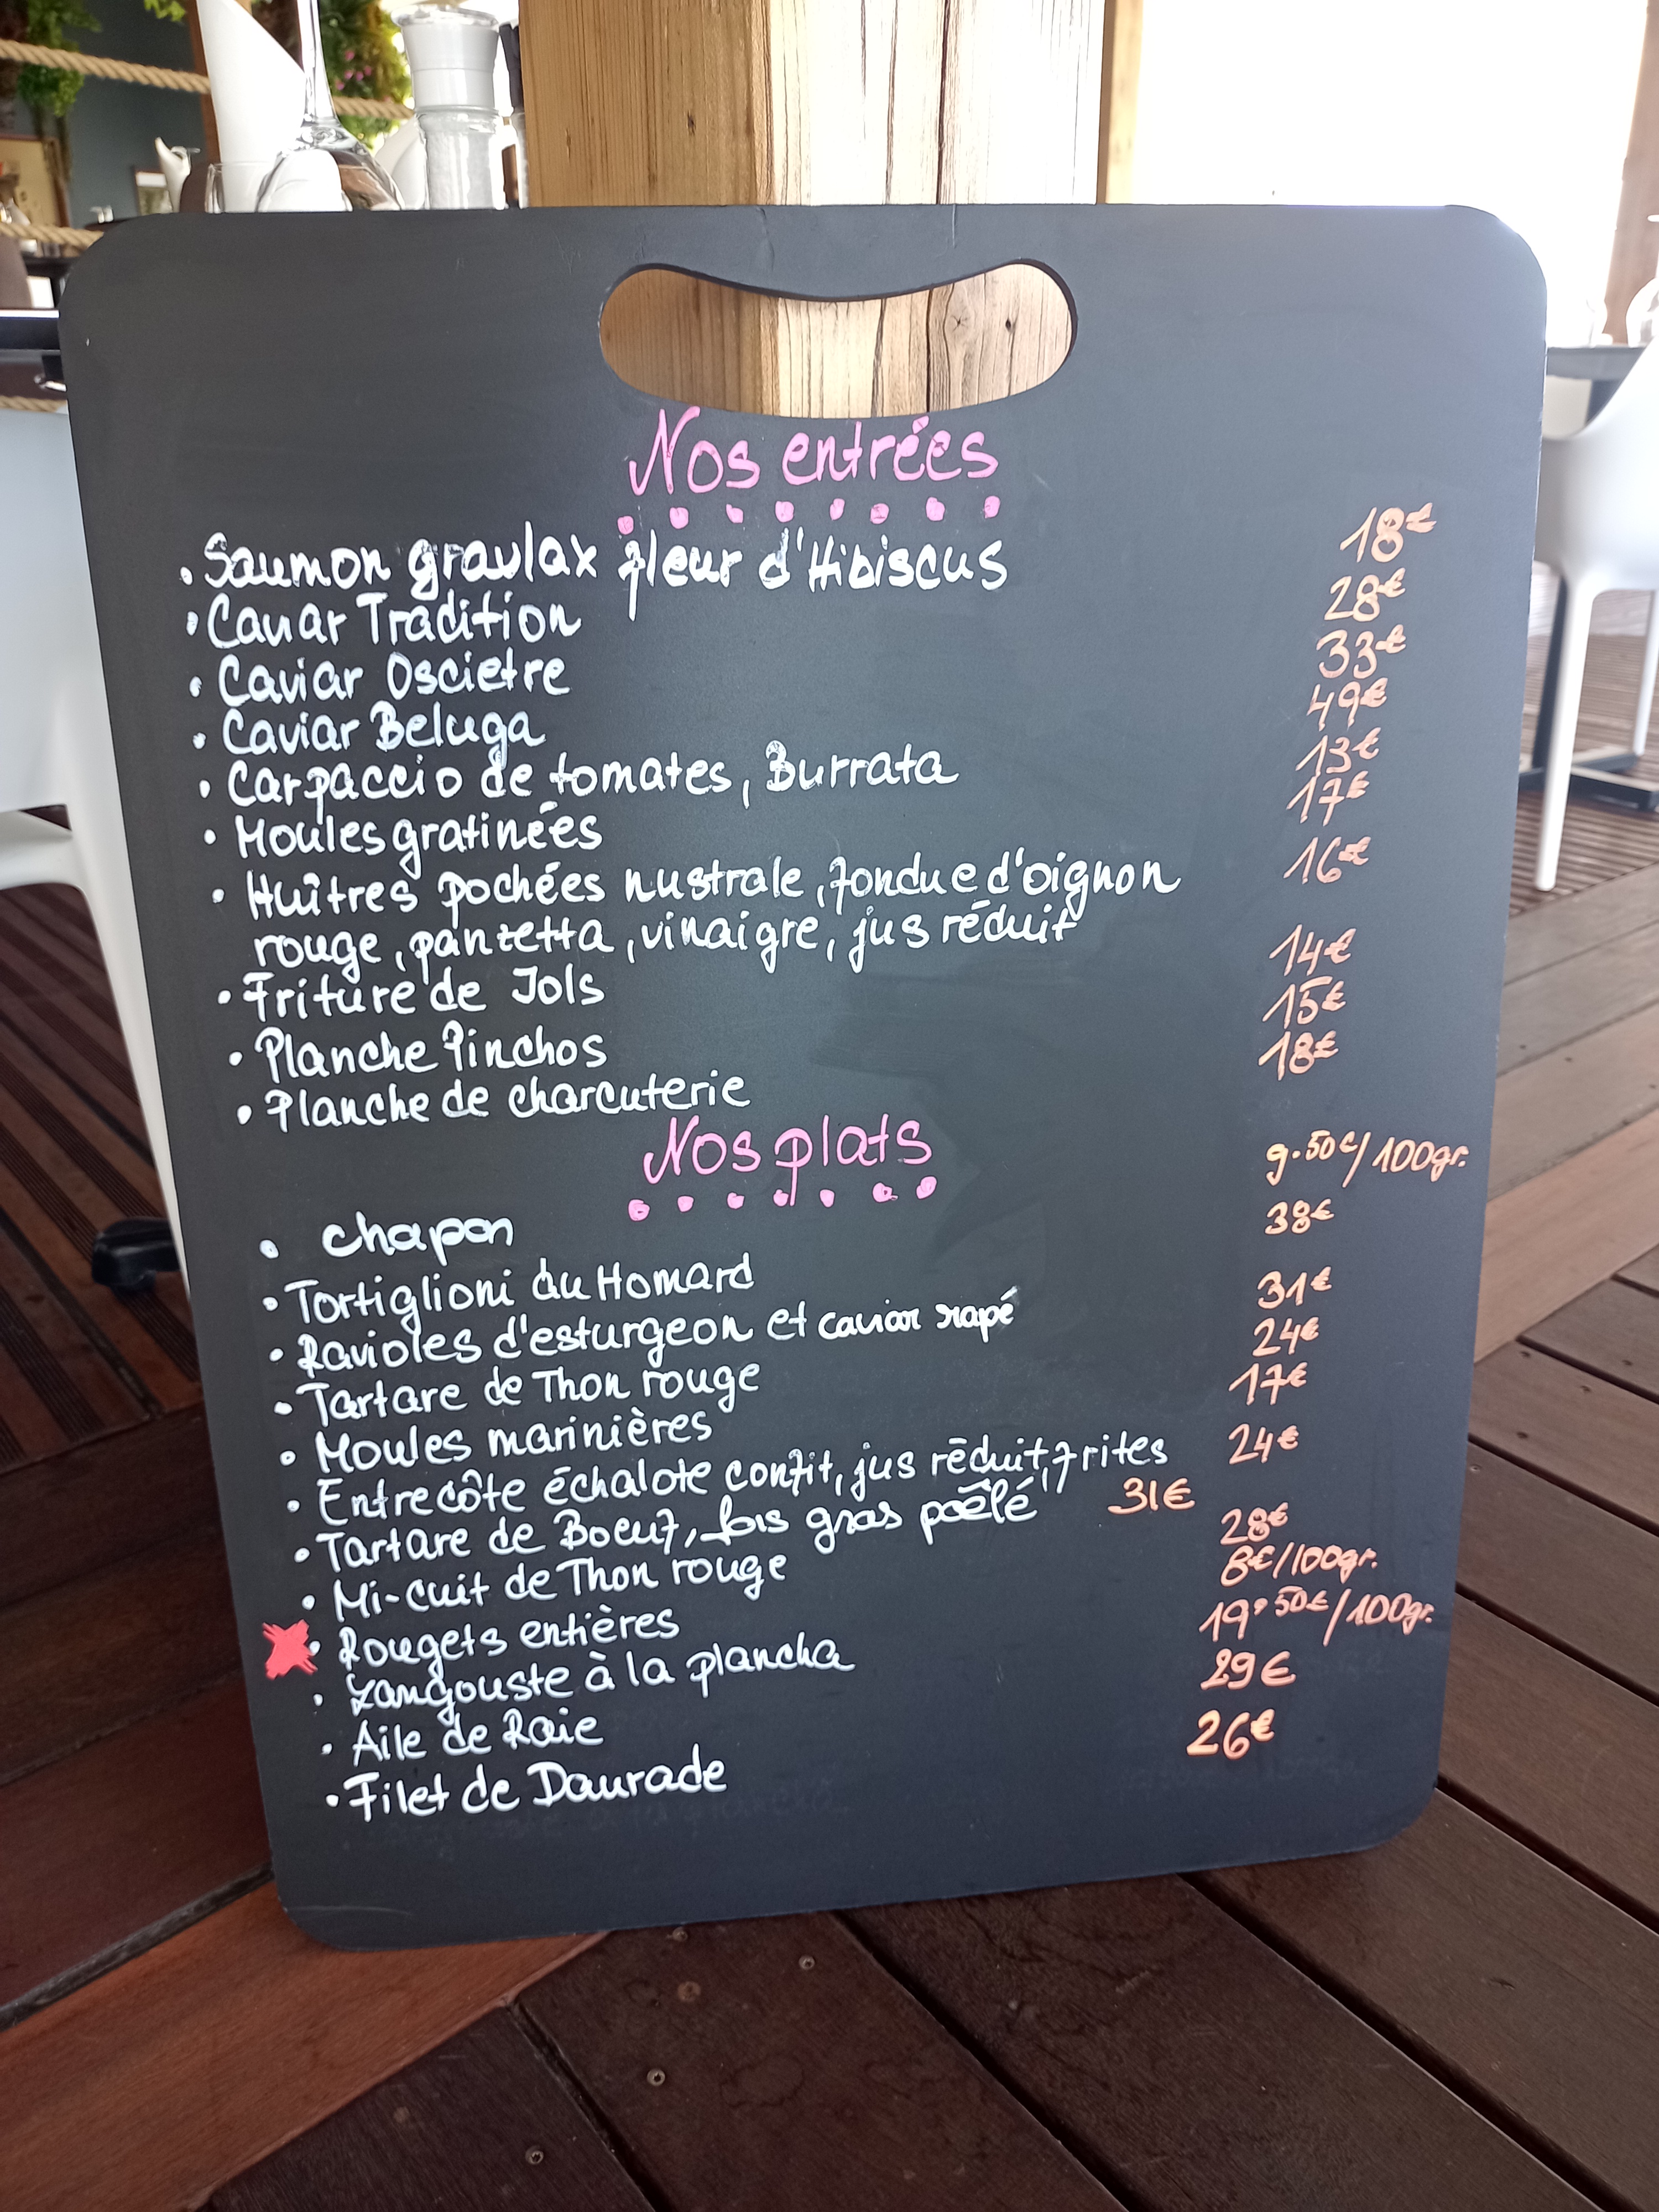 Nos entrées
• Saumon gravlax fleur d'Hibiscus 18€
• Caviar Tradition 28€
• Caviar Oscietre 33€
• Caviar Beluga 49€
• Carpaccio de tomates, Burrata 13€
• Moules gratinées 17€
• Huîtres pochées nustrale, fondue d'oignon 16€
rouge, panzetta, vinaigre, jus réduit
• Friture de Jols 14€
• Planche Pinchos 15€
• Planche de charcuterie 18€
Nos plats
• chapon 9.50€/100gr.
• Tortiglioni au Homard 38€
• Ravioles d'esturgeon et caviar rapé 31€
• Tartare de Thon rouge 24€
• Moules marinières 17€
• Entrecôte échalote confit, jus réduit, frites 24€
• Tartare de Boeuf, fois gras poêlé 31€
• Mi-cuit de Thon rouge 28€
• Rougets entières 8€/100gr.
• Langouste à la plancha 19,50€/100gr.
• Aile de Raie 29€
• Filet de Daurade 26€